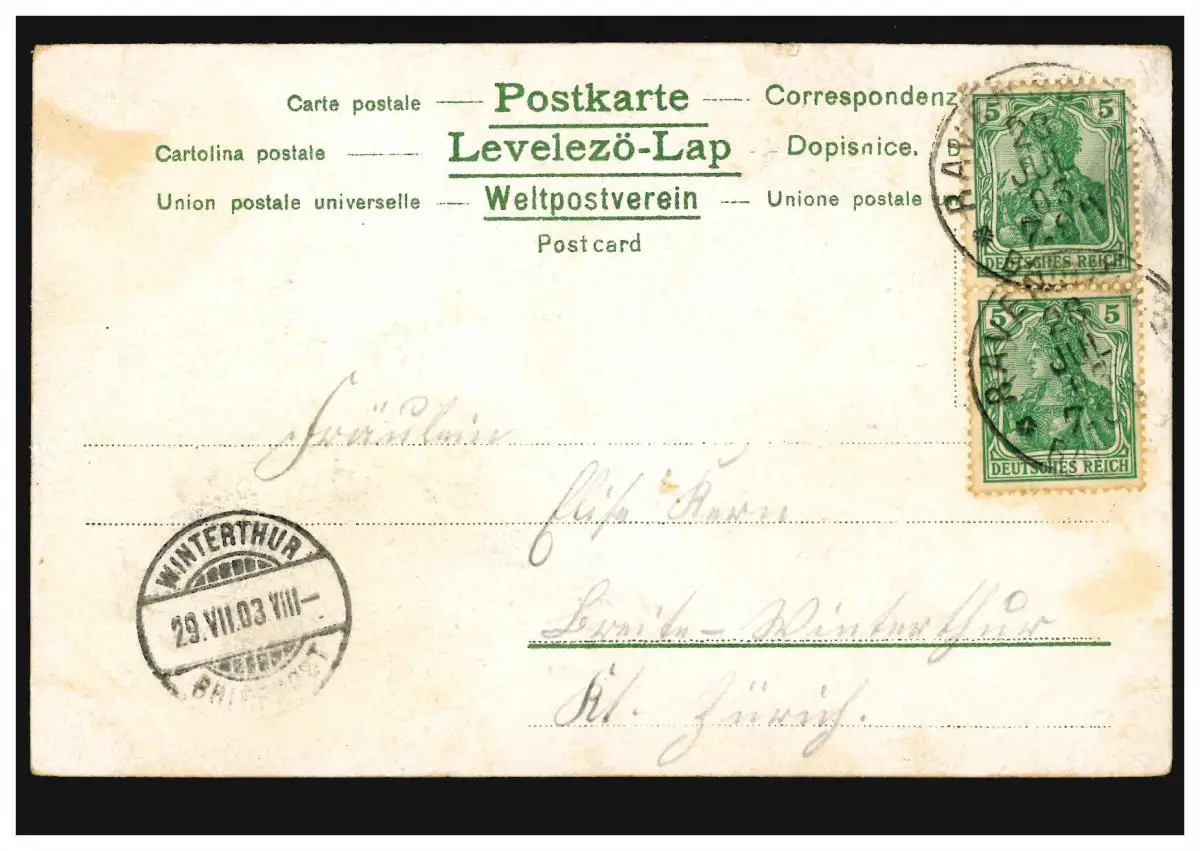 Carte postale — Postkarte — Correspondenz
Cartolina postale — Levelező-Lap - Dopisnice.
Union postale universelle — Weltpostverein — Unione postale
Postcard
5 5
DEUTSCHES REICH
5 5
DEUTSCHES REICH
28
JUL
03
28
JUL
Fräulein
Elise Kern
Breite-Winterthur
Kt. Zürich.
WINTERTHUR
29.VII.03.VIII—